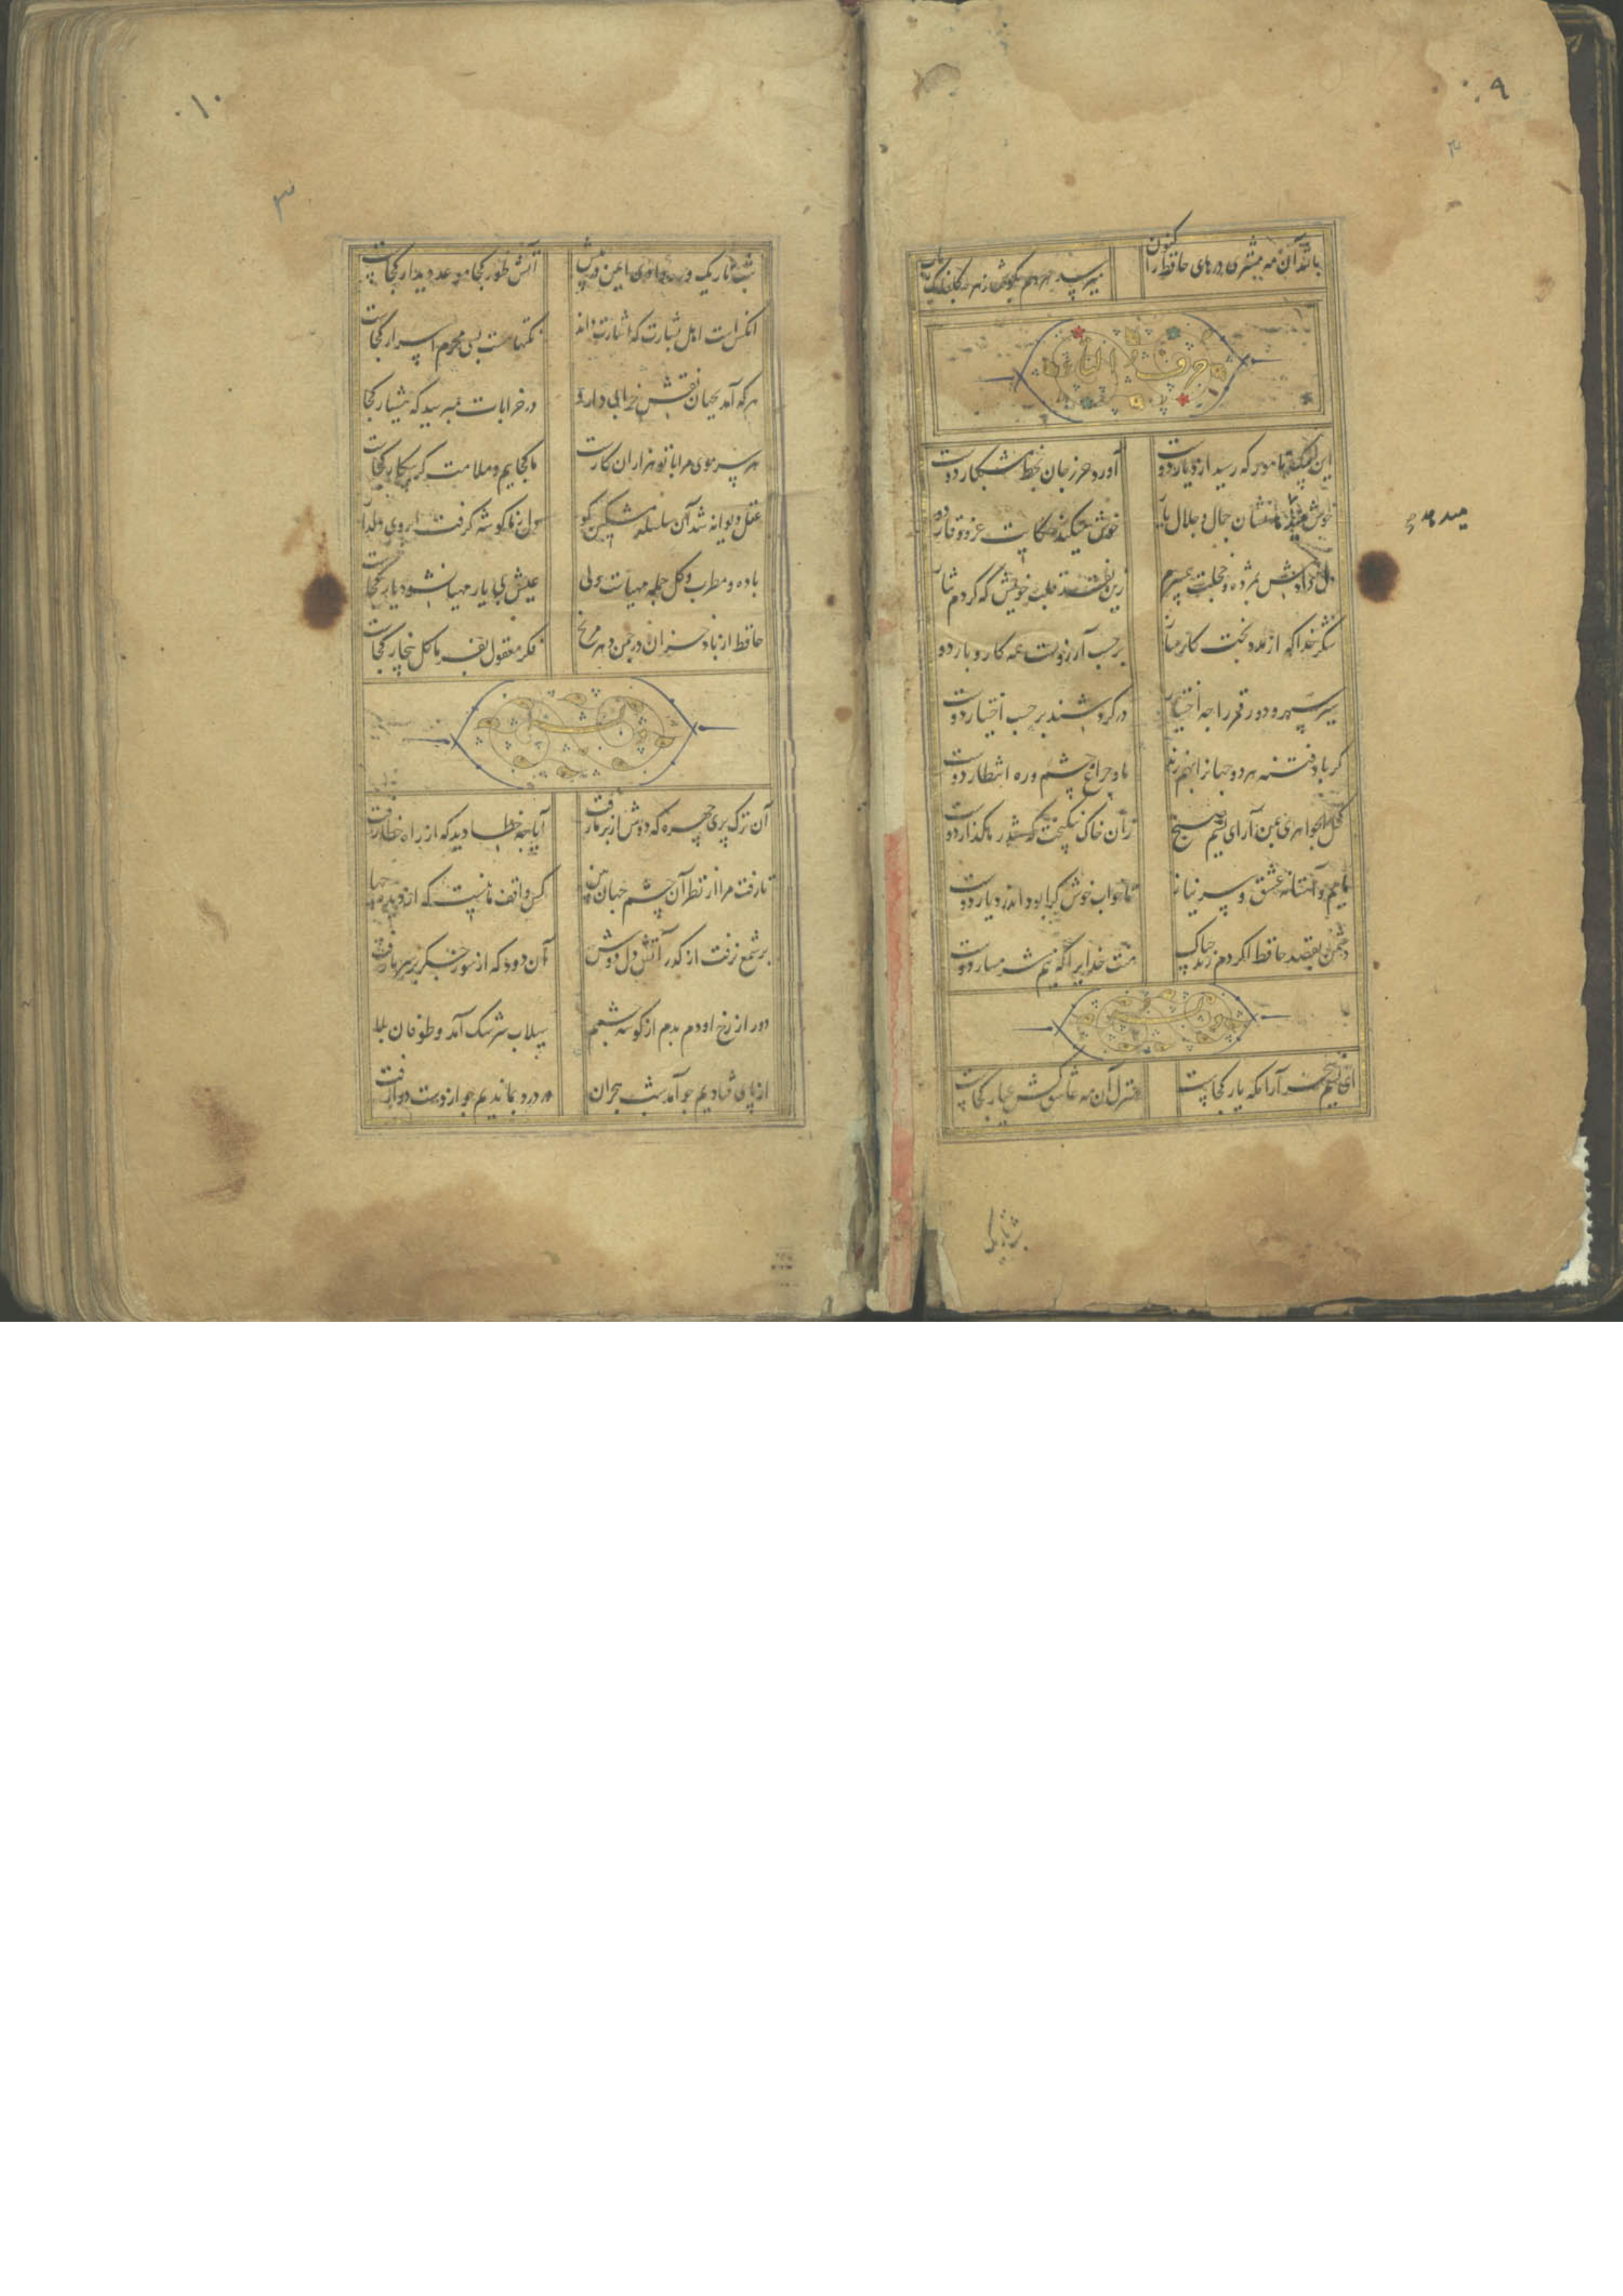 ۰۹
باشد آن مه مشتری درهای حافظ را کنون
حرف التاء
این پیک نامور که رسید از دیار دوست    آورد حرز جان ز خط مشکبار دوست
خوش میدهد نشان جمال و جلال یار    خوش میکند حکایت عز و وقار دوست
دل دادمش بمژده و خجلت همی برم    زین نقد قلب خویش که کردم نثار
شکر خدا که از مدد بخت کارساز    بر حسب آرزوست همه کار و بار دوست
سیر سپهر و دور قمر را چه اختیار    در گردشند بر حسب اختیار دوست
گر باد فتنه هر دو جهانرا بهم زند    ما و چراغ چشم و ره انتظار دوست
کحل الجواهری بمن آرای نسیم صبح    زان خاک نیکبخت که شد رهگذار دوست
ماییم و آستانه عشق و سر نیاز    تا خواب خوش کرا بود اندر دیار دوست
دشمن بقصد حافظ اگر دم زند چه باک    منت خدایرا که نیم شرمسار دوست
ای نسیم سحر آرامگه یار کجاست    منزل آن مه عاشق کش عیار کجاست
۱۰
۳
شب تاریک و ره وادی ایمن در پیش    آتش طور کجا موعد دیدار کجاست
آنکس است اهل بشارت که اشارت داند    نکتها هست بسی محرم اسرار کجاست
هر که آمد بجهان نقش خرابی دارد    در خرابات مپرسید که هشیار کجا
هر سر موی مرا با تو هزاران کارست    ما کجاییم و ملامت گر بیکار کجاست
عقل دیوانه شد آن سلسله مشکین کو    دل ز ما گوشه گرفت ابروی دلدار
باده و مطرب و گل جمله مهیاست ولی    عیش بی یار مهیا نشود یار کجاست
حافظ از باد خزان در چمن دهر مرنج    فکر معقول بفرما گل بیخار کجاست
آن ترک پری چهره که دوش از بر ما رفت    آیا چه خطا دید که از راه خطا رفت
تا رفت مرا از نظر آن چشم جهان بین    کس واقف ما نیست که از دیده چها
بر شمع نرفت از گذر آتش دل دوش    آن دود که از سوز جگر بر سر ما رفت
دور از رخ او دم بدم از گوشه چشمم    سیلاب سرشک آمد و طوفان بلا
از پای فتادیم چو آمد شب هجران    در درد بماندیم چو از دست دوا رفت